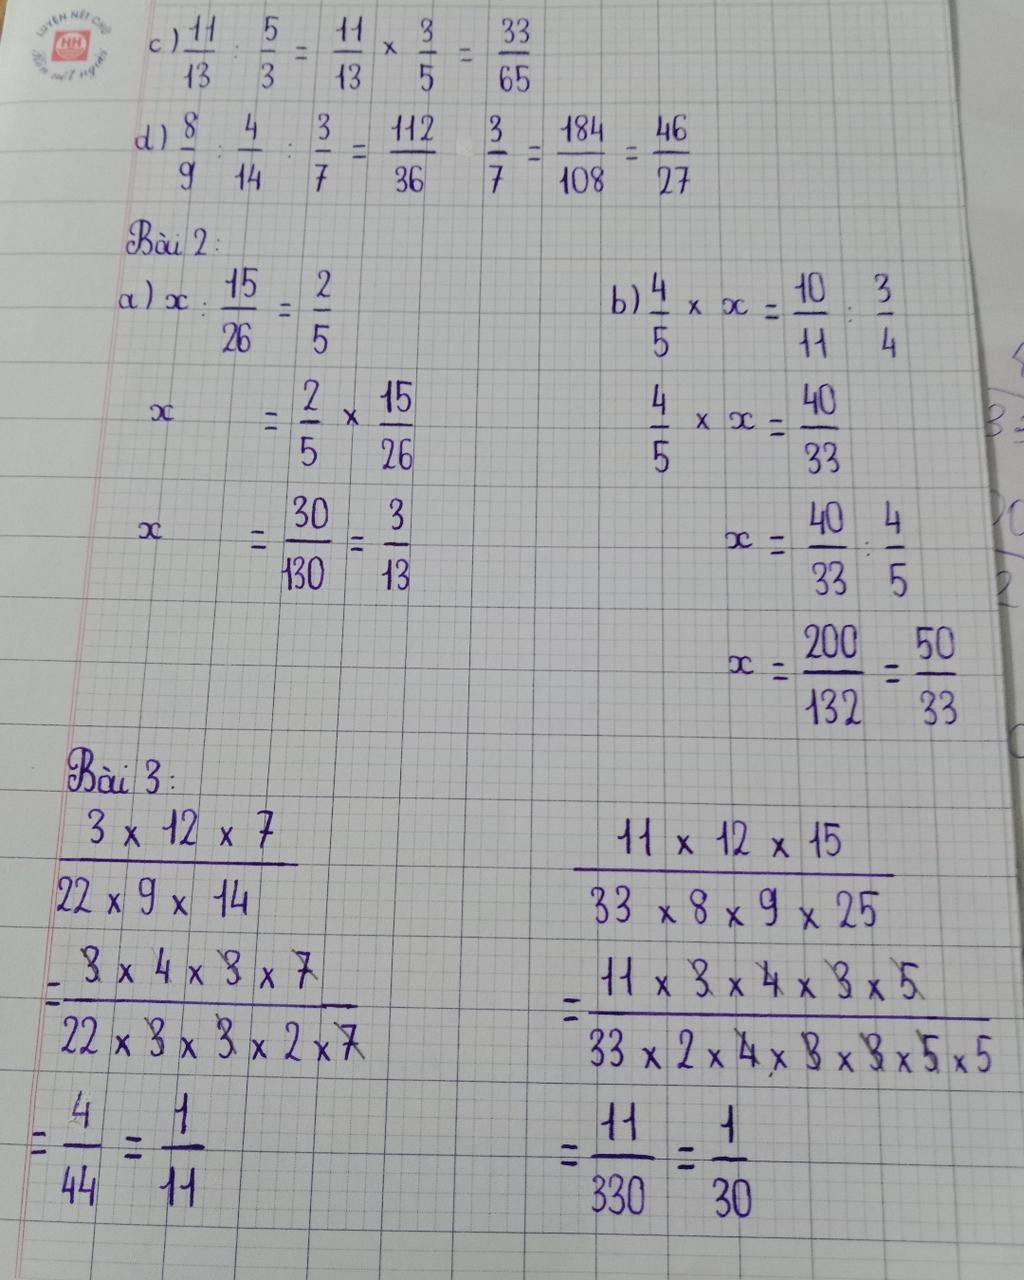 LUYỆN NÉT CHỮ
HH
Rèn nết người
c) 11/13 : 5/3 = 11/13 × 3/5 = 33/65
d) 8/9 : 4/14 : 3/7 = 112/36 3/7 = 184/108 = 46/27
Bài 2:
a) x : 15/26 = 2/5
x = 2/5 × 15/26
x = 30/130 = 3/13
b) 4/5 × x = 10/11 : 3/4
4/5 × x = 40/33
x = 40/33 : 4/5
x = 200/132 = 50/33
Bài 3:
3 × 12 × 7
22 × 9 × 14
= 3 × 4 × 3 × 7
22 × 3 × 3 × 2 × 7
= 4/44 = 1/11
11 × 12 × 15
33 × 8 × 9 × 25
= 11 × 3 × 4 × 3 × 5
33 × 2 × 4 × 3 × 3 × 5 × 5
= 11/330 = 1/30